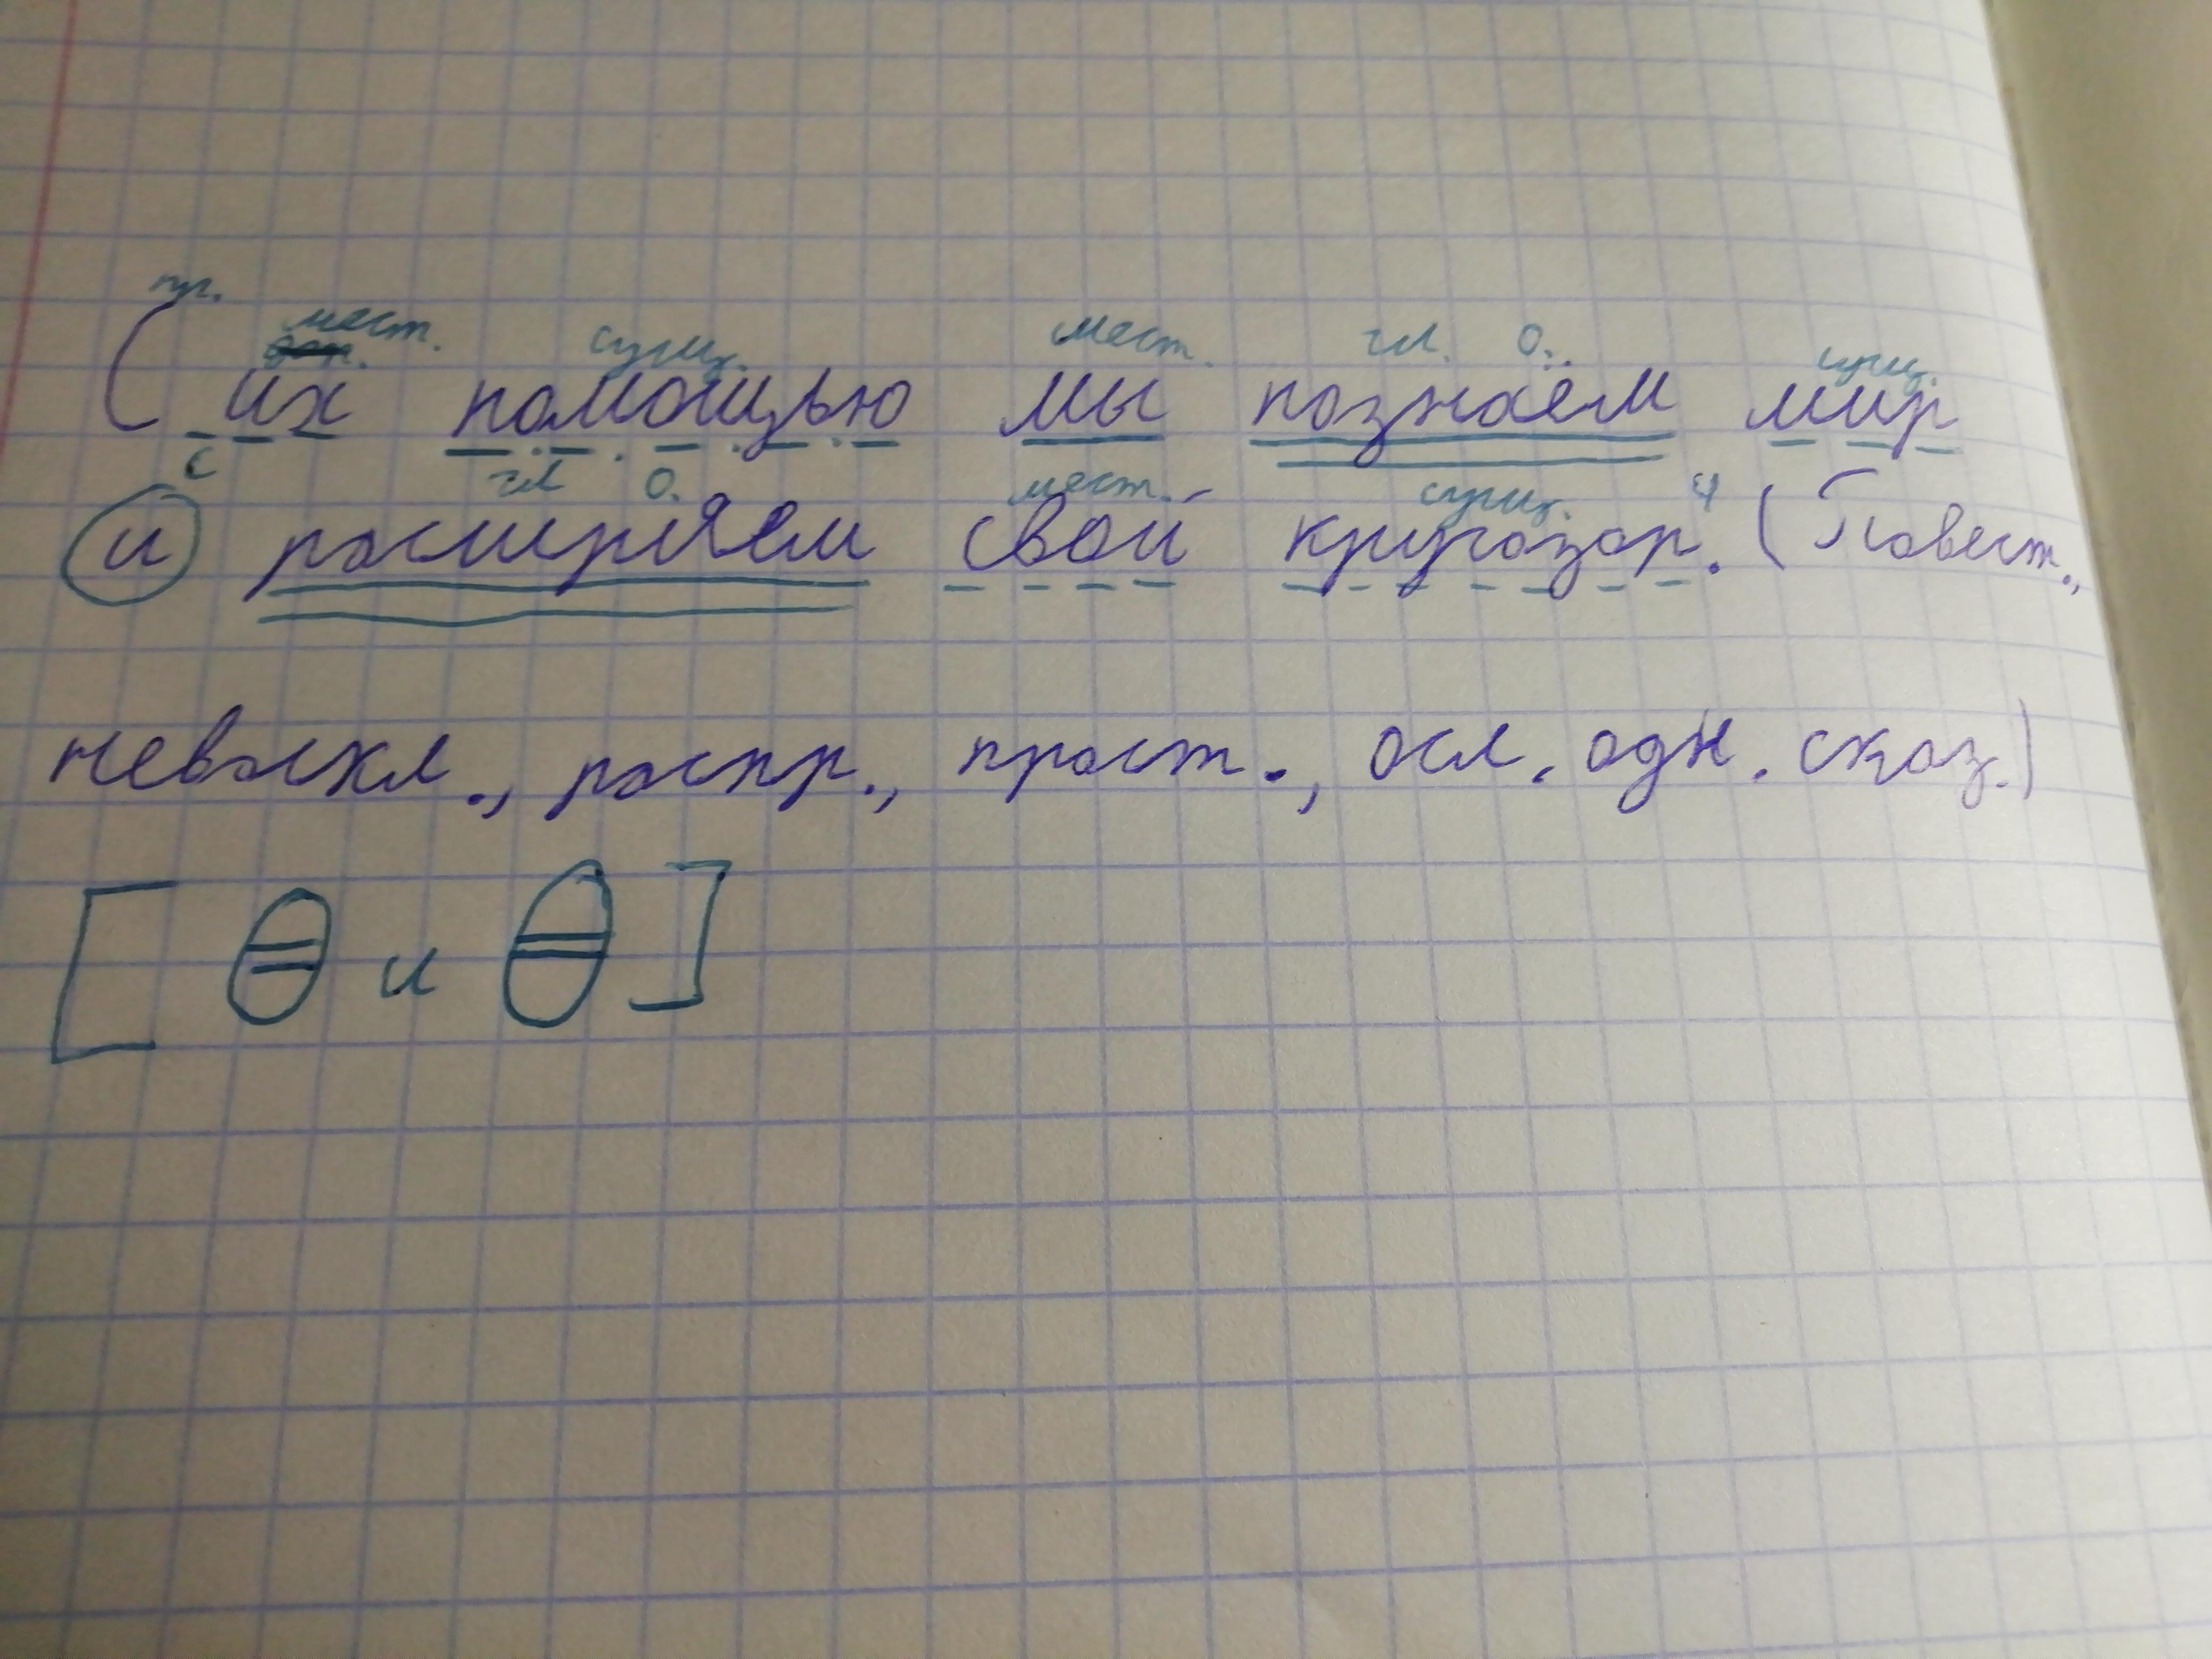 пр. мест. сущ. мест. гл. О. сущ.
С их помощью мы познаём мир
с гл О. мест. сущ. 4
и расширяем свой кругозор. (Повест.,
невоскл., распр., прост., осл. одн. сказ.)
[ и ]